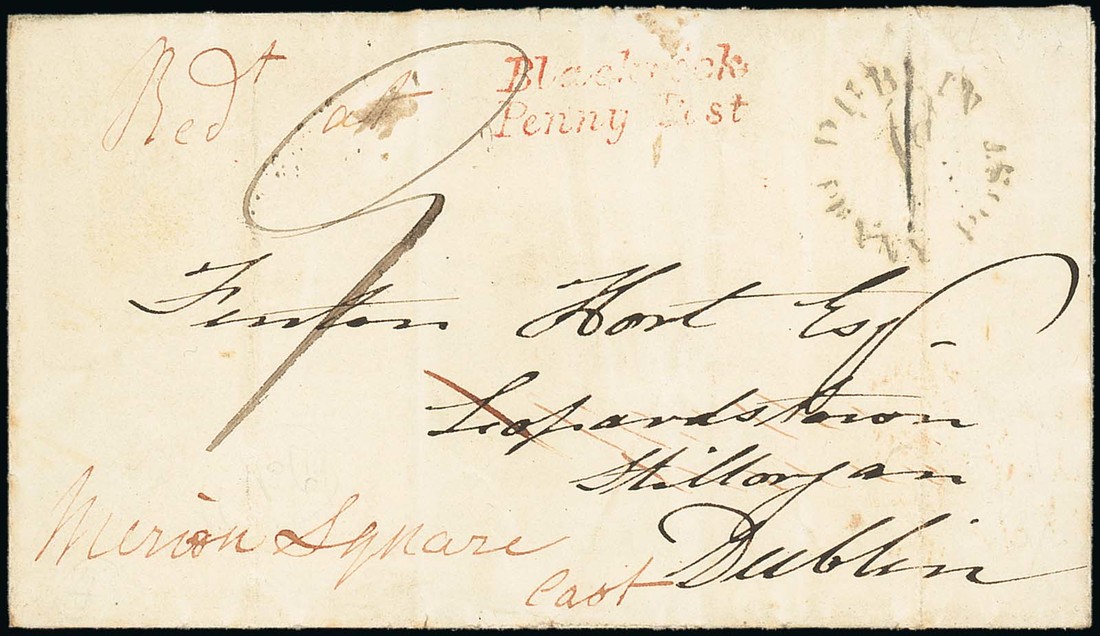 Red^t at
Blackrock
Penny Post
DUBLIN PENNY POST
9
Fenton Hort Esq
Leopardstown
Stillorgan
Dublin
Merion Square
East